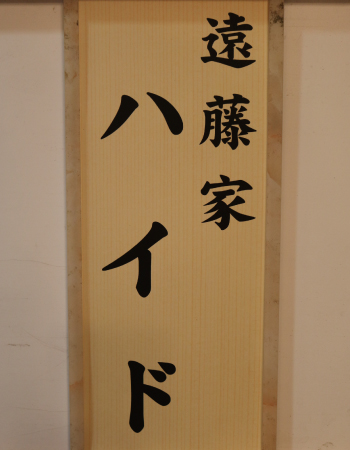 遠藤家
ハイド